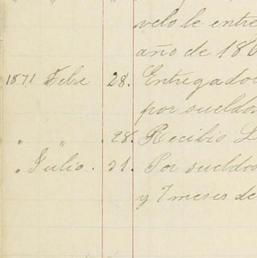 velo le entre
año de 186
1871 Febe 28. Entregado
por sueldo
" " 28. Recibio L
" Julio. 21. Por sueldos
y 7 meses de